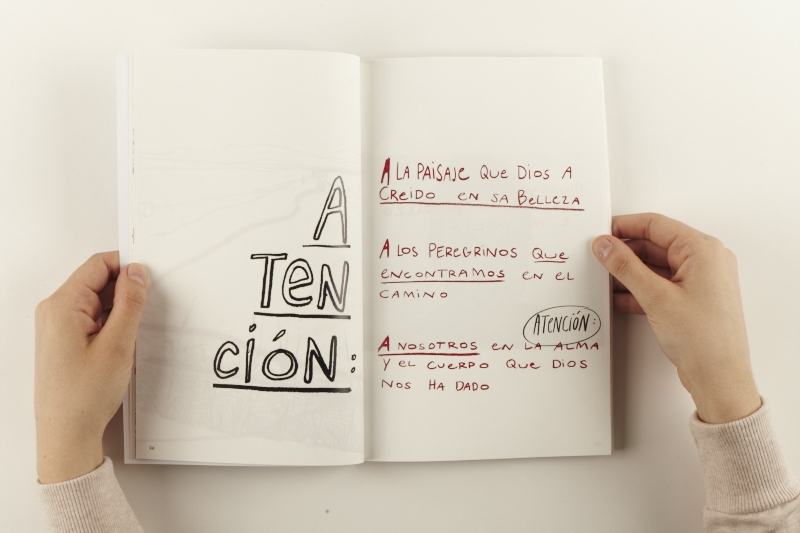 A
TeN
CIÓN:
A LA PAISAJE QUE DIOS A
CREIDO EN SA BELLEZA
A LOS PEREGRINOS QUE
ENCONTRAMOS EN EL
CAMINO
ATENCIÓN:
A NOSOTROS EN LA ALMA
Y EL CUERPO QUE DIOS
NOS HA DADO